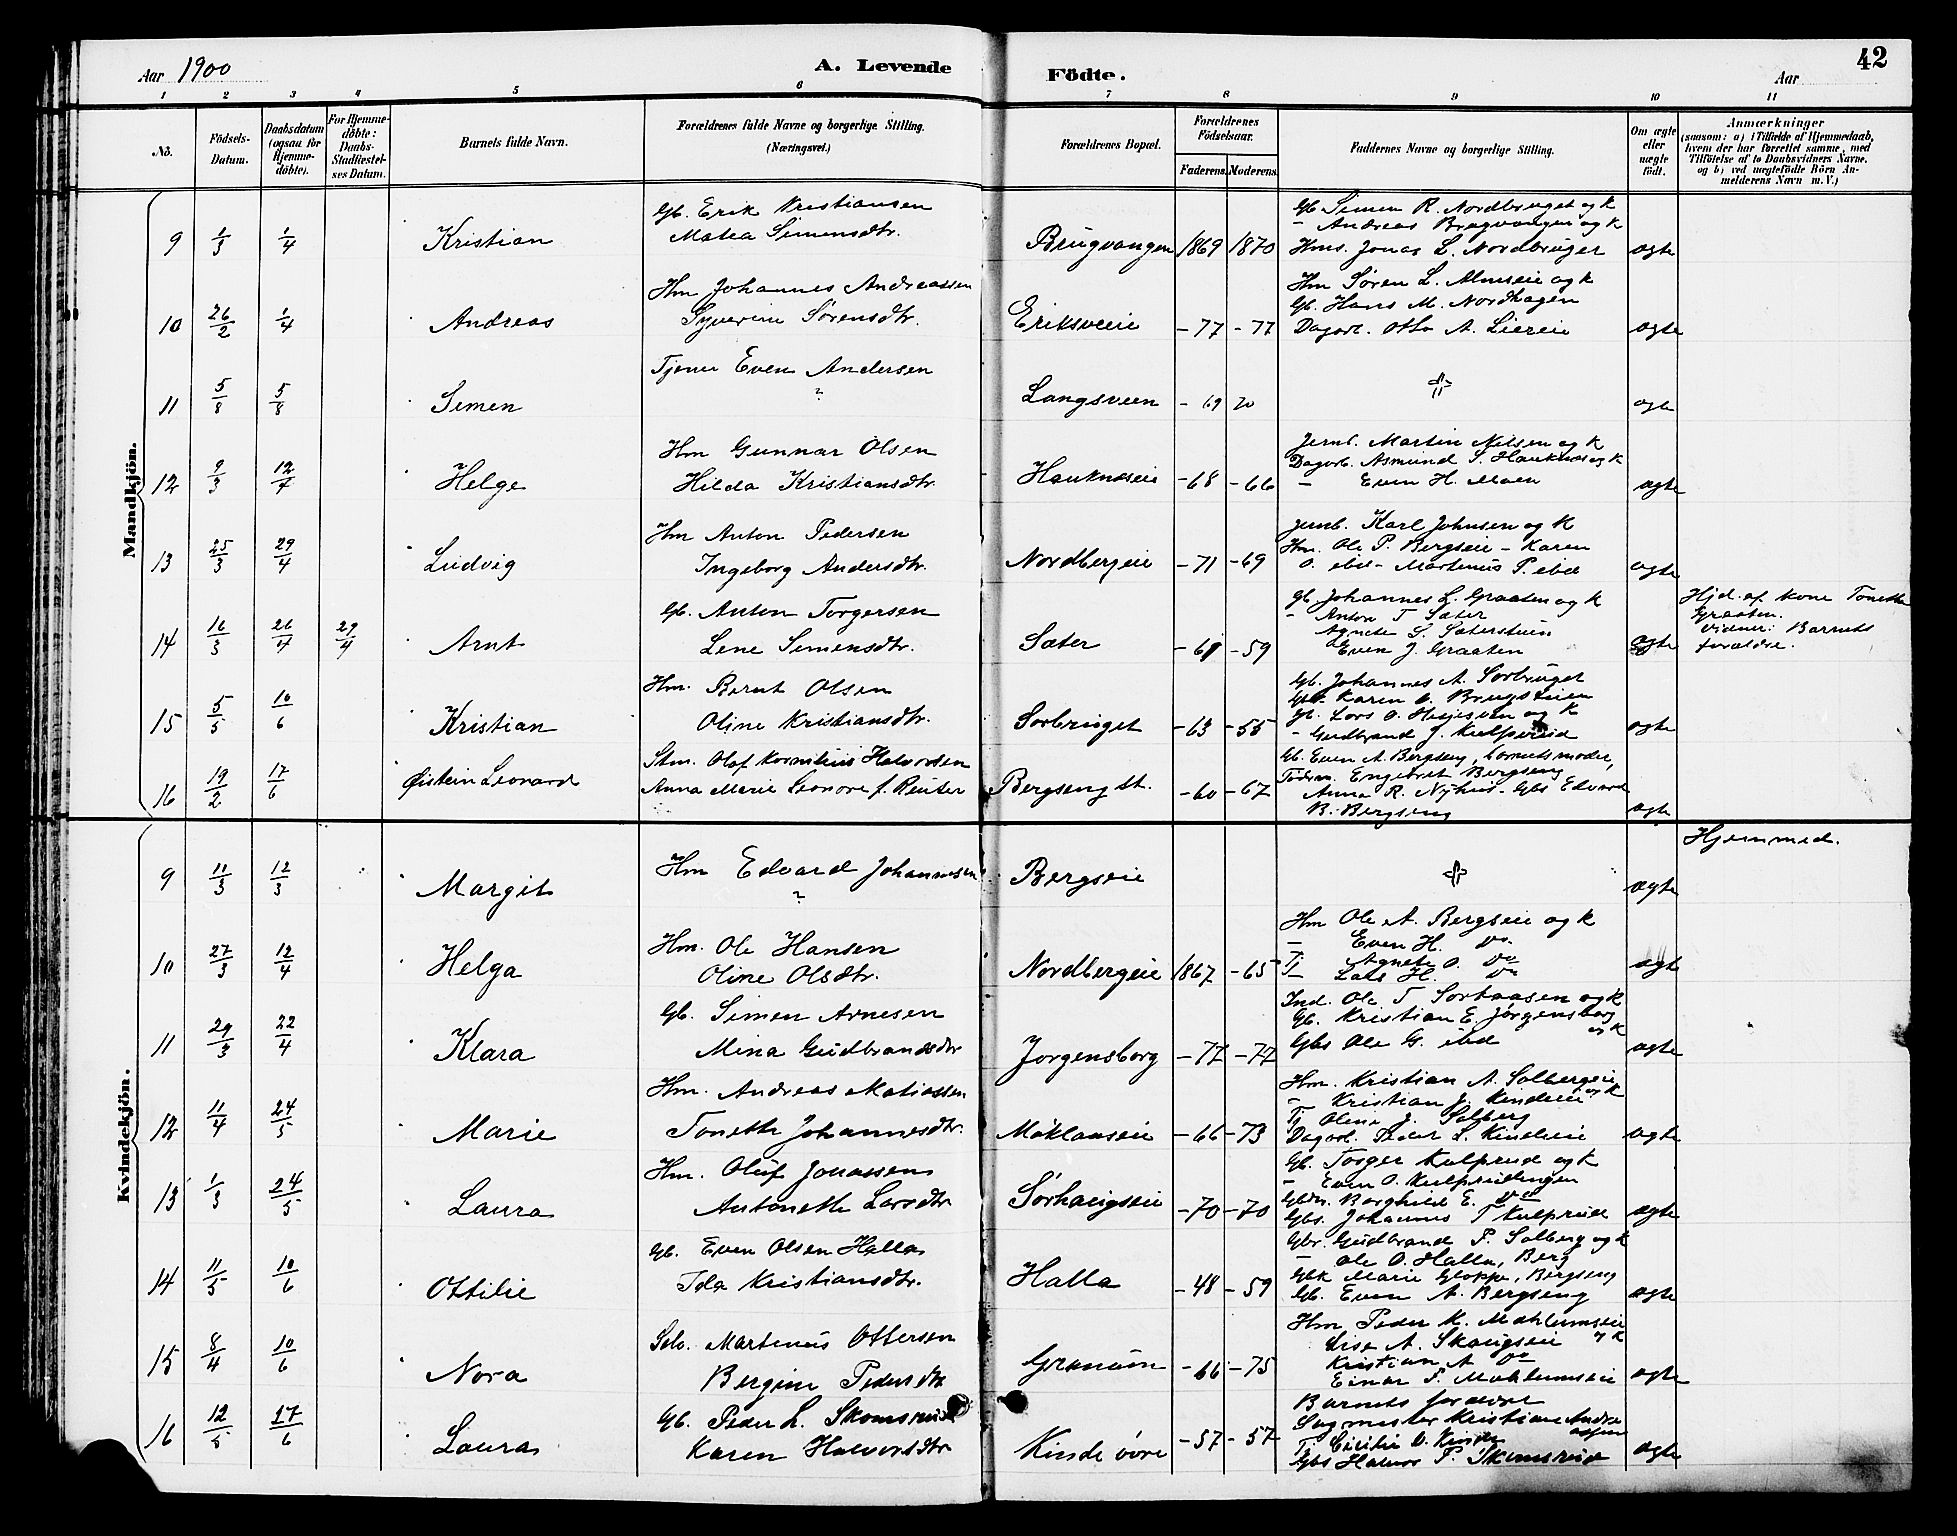 Aar 1900
A. Levende
Födte.
Aar
42
1 2 3 4 5 6 7 8 9 10 11
No.
Födsels-
Datum.
Daabsdatum
(ogsaa for
Hjemme-
döbte).
For Hjemme-
döbte:
Daabs-
Stadfæstel-
ses Datum.
Barnets fulde Navn.
Forældrenes fulde Navne og borgerlige Stilling.
(Næringsvei.)
Forældrenes Bopæl.
Forældrenes
Födselsaar.
Faderens. Moderens.
Faddernes Navne og borgerlige Stilling.
Om ægte
eller
uægte
født.
Anmærkninger
(saasom: a) i Tilfælde af Hjemmedaab,
hvem der har forrettet samme, med
Tilföielse af to Daabsvidners Navne,
og b) ved uægtefödte Börn An-
melderens Navn m. V.)
Mandkjön.
9 1/3 1/4 Kristian
Gb. Erik Kristiansen
Matea Simensdtr.
Brugvangen 1869 1870
Gb Simen R. Nordbruget og k
- Andreas Brugvangen og k
Hms. Jonas L. Nordbruget
ægte
10 26/2 1/4 Andreas
Hm Johannes Andreassen
Syverine Sørensdtr.
Eriksveie -77 -77
Hm Søren L. Almseie og k
Gb. Hans M. Nordhagen
Dagarb. Otto A. Liereie
ægte
11 5/8 5/8 Simen
Tjener Even Andersen
?
Langsveen -69 70
ægte
12 9/3 12/4 Helge
Hm Gunnar Olsen
Hilda Kristiansdtr.
Hauknæseie -68 -66
Jernb. Martin Nilsen og k
Dagarb. Asmund S. Hauknæs og k
- Even H. Moen
ægte
13 25/3 29/4 Ludvig
Hm Anton Pedersen
Ingeborg Andersdtr.
Nordbergeie -71 -69
Jernb. Karl Johnsen og k
Hm. Ole P. Bergseie - Karen
O. ibd - Martinus P. ibd
ægte
14 16/3 26/4 29/4 Arnt
Gb. Anton Torgersen
Lene Simensdtr.
Sæter -61 -59
Gb. Johannes L. Graaten og k
- Anton T Sæter
Agnete S. Sæterstuen
Even J. Graaten
ægte
Hjd. af kone Tonette
Graaten.
Vidner: Barnets
forældre.
15 5/5 10/6 Kristian
Hm. Bernt Olsen
Oline Kristiansdtr.
Sørbruget -63 -55
Gb. Johannes A. Sørbruget
Karen O. Brugstuen
Gb. Lars O. Hesjesven og k
- Gudbrand J. Kulpreie
ægte
16 19/2 17/6 Øistein Leonard
Stm. Olaf Kornelius Halvorsen
Anna Marie Leonore f. Reuter
Bergseng st. -60 -67
Gb. Even A. Bergseng, barnets moder,
Engebret Bergseng
Anna R. Nyhus - Gbs Edvard
B. Bergseng
ægte
Kvindekjön.
9 11/3 12/3 Margit
Hm Edvard Johannesen
?
Bergseie
ægte
Hjemmed.
10 27/3 12/4 Helga
Hm. Ole Hansen
Oline Olsdtr.
Nordbergeie 1867 -65
Hm Ole A. Bergseie og k
- Even H. Do.
Tj Agnete O. Do
- Lars H. Do
ægte
11 29/3 22/4 Klara
Gb. Simen Arnesen
Mina Gudbrandsdtr
Jørgensborg -77 -77
Ind. Ole T Sørhaasen og k
Gb. Kristian E. Jørgensborg
og k
Gbs Ole G. ibd
ægte
12 11/4 24/5 Marie
Hm. Andreas Matiassen
Tonette Johannesdtr.
Mæhlumseie -66 -73
Hm. Kristian A. Solbergeie
- Kristian J. Kindeeie og k
Tj Oline J. Solberg
Dagarb. Peder L. Kindeeie
ægte
13 1/3 24/5 Laura
Hm. Oluf Jonassen
Antonette Larsdtr
Sørhaugseie -70 -70
Gb. Torger Kulprud og k
- Even O. Kulprudengen
Gbdr. Borghild E. Do
Gbs. Johannes T Kulprud
ægte
14 11/5 10/6 Ottilie
Gb. Even Olsen Halla
Ida Kristiansdtr.
Halla -48 -59
Gbr. Gudbrand P. Solberg og k
- Ole O. Halla, Berg
Gbk Marie Gloppe, Bergseng
Gb. Even A. Bergseng
ægte
15 8/4 10/6 Nora
Selv. Martinus Ottersen
Bergine Pedersdtr
Granum -66 -75
Hm Peder K. Mæhlumseie
og k
Lise A. Skaugseie
Kristian A Do
Einar P. Mæhlumseie
ægte
16 12/5 17/6 Laura
Gb. Peder L. Skomsrud
Karen Halvorsdtr
Kinde øvre -57 -57
Barnets forældre
Sagmester Kristian Andre-
assen
Tj Cicilie O. Kinde
Gbs Halvor P. Skomsrud
ægte